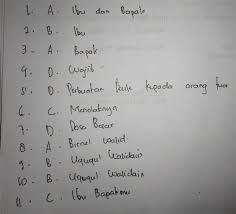 1. A. Ibu dan Bapak
2. B. Ibu
3. A. Bapak
4. D. Wajib
5. D. Perbuatan baik kepada orang tua
6. C. Menolaknya
7. D. Dosa Besar
8. A. Birrul walid
9. B. Uququl Walidain
10. B. Uququl Walidain
11. C. Ibu Bapakmu